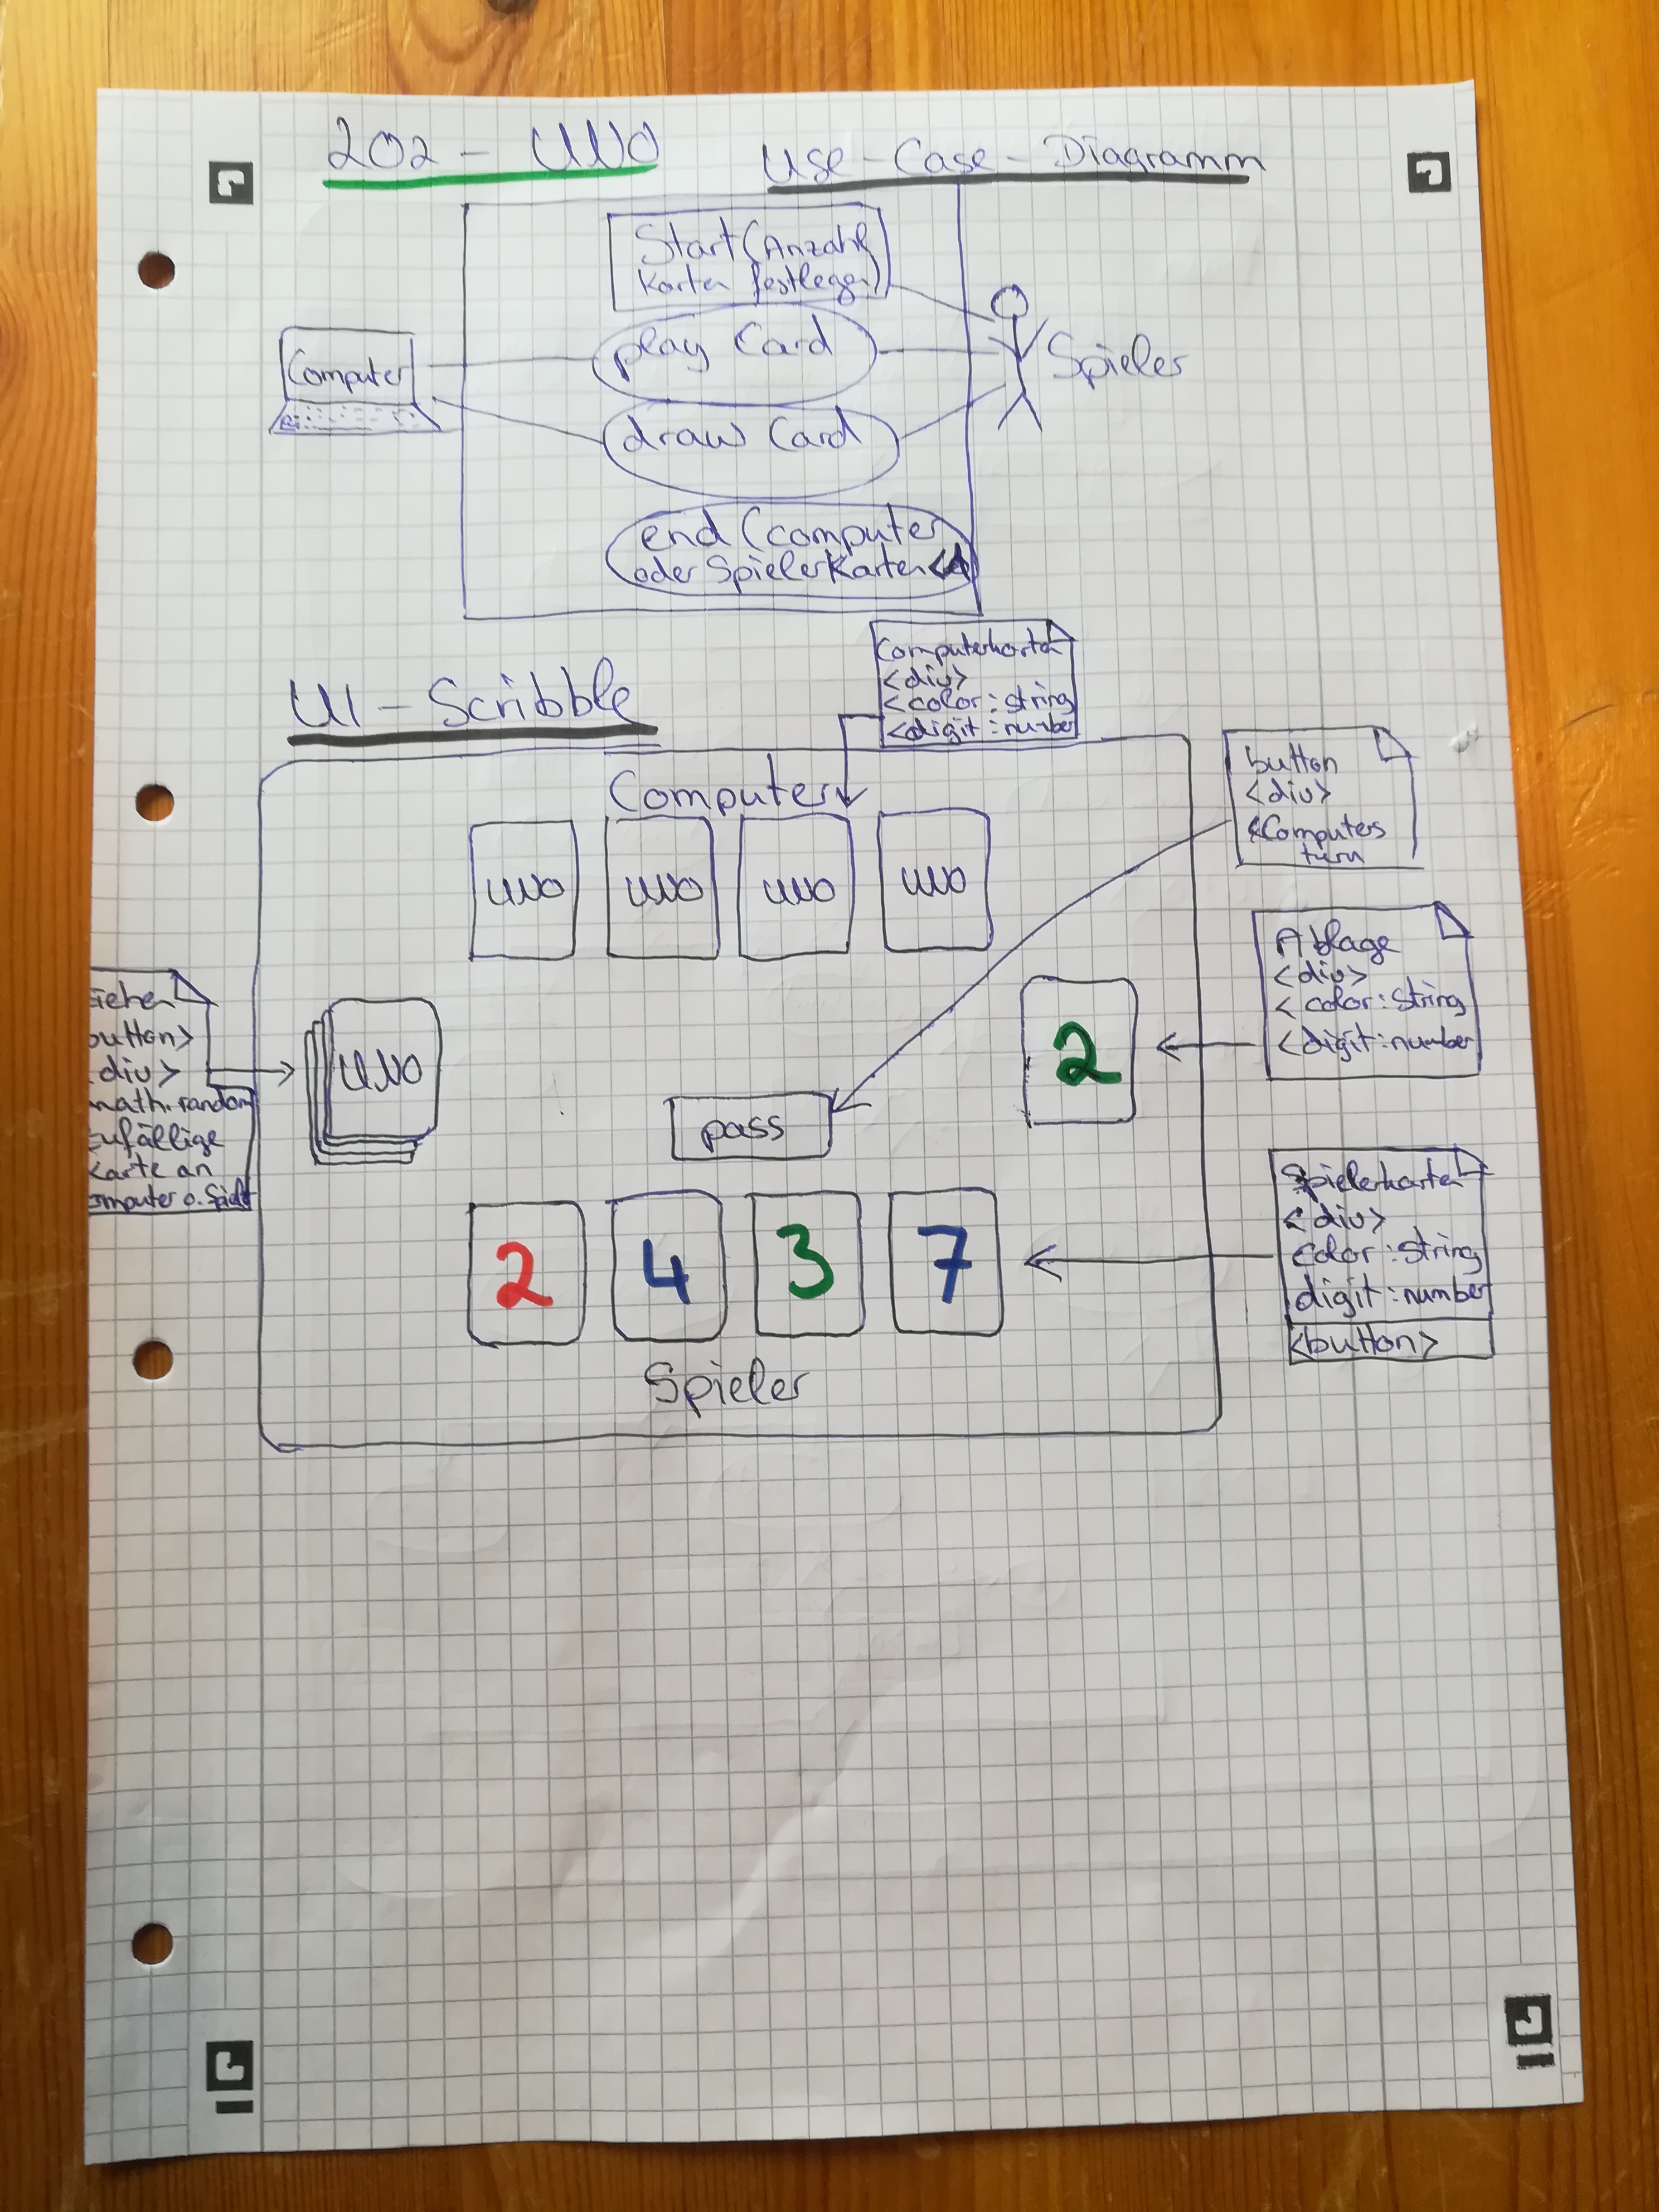 2O2 - UNO
Use-Case-Diagramm
Start (Anzahl
Karten festlegen)
Computer
play Card
Spieler
draw Card
end (computer
oder SpielerKarten <1
UI-Scribble
Computerkarten
<div>
<color:string
<digit:number
Computer
button
<div>
<Computers
turn
UNO
UNO
UNO
UNO
Ablage
<div>
<color:String
<digit:number
2
button>
div>
math.random
zufällige
Karte an
omputer o. Spieler
UNO
pass
Spielerkarten
<div>
color:String
digit:number
<button>
2
4
3
7
Spieler